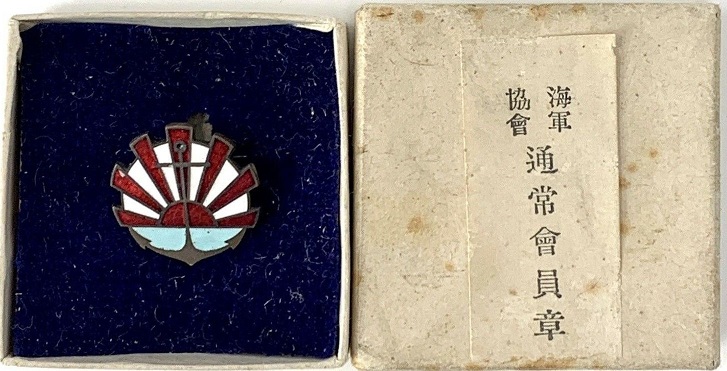 海軍
協會
通常會員章